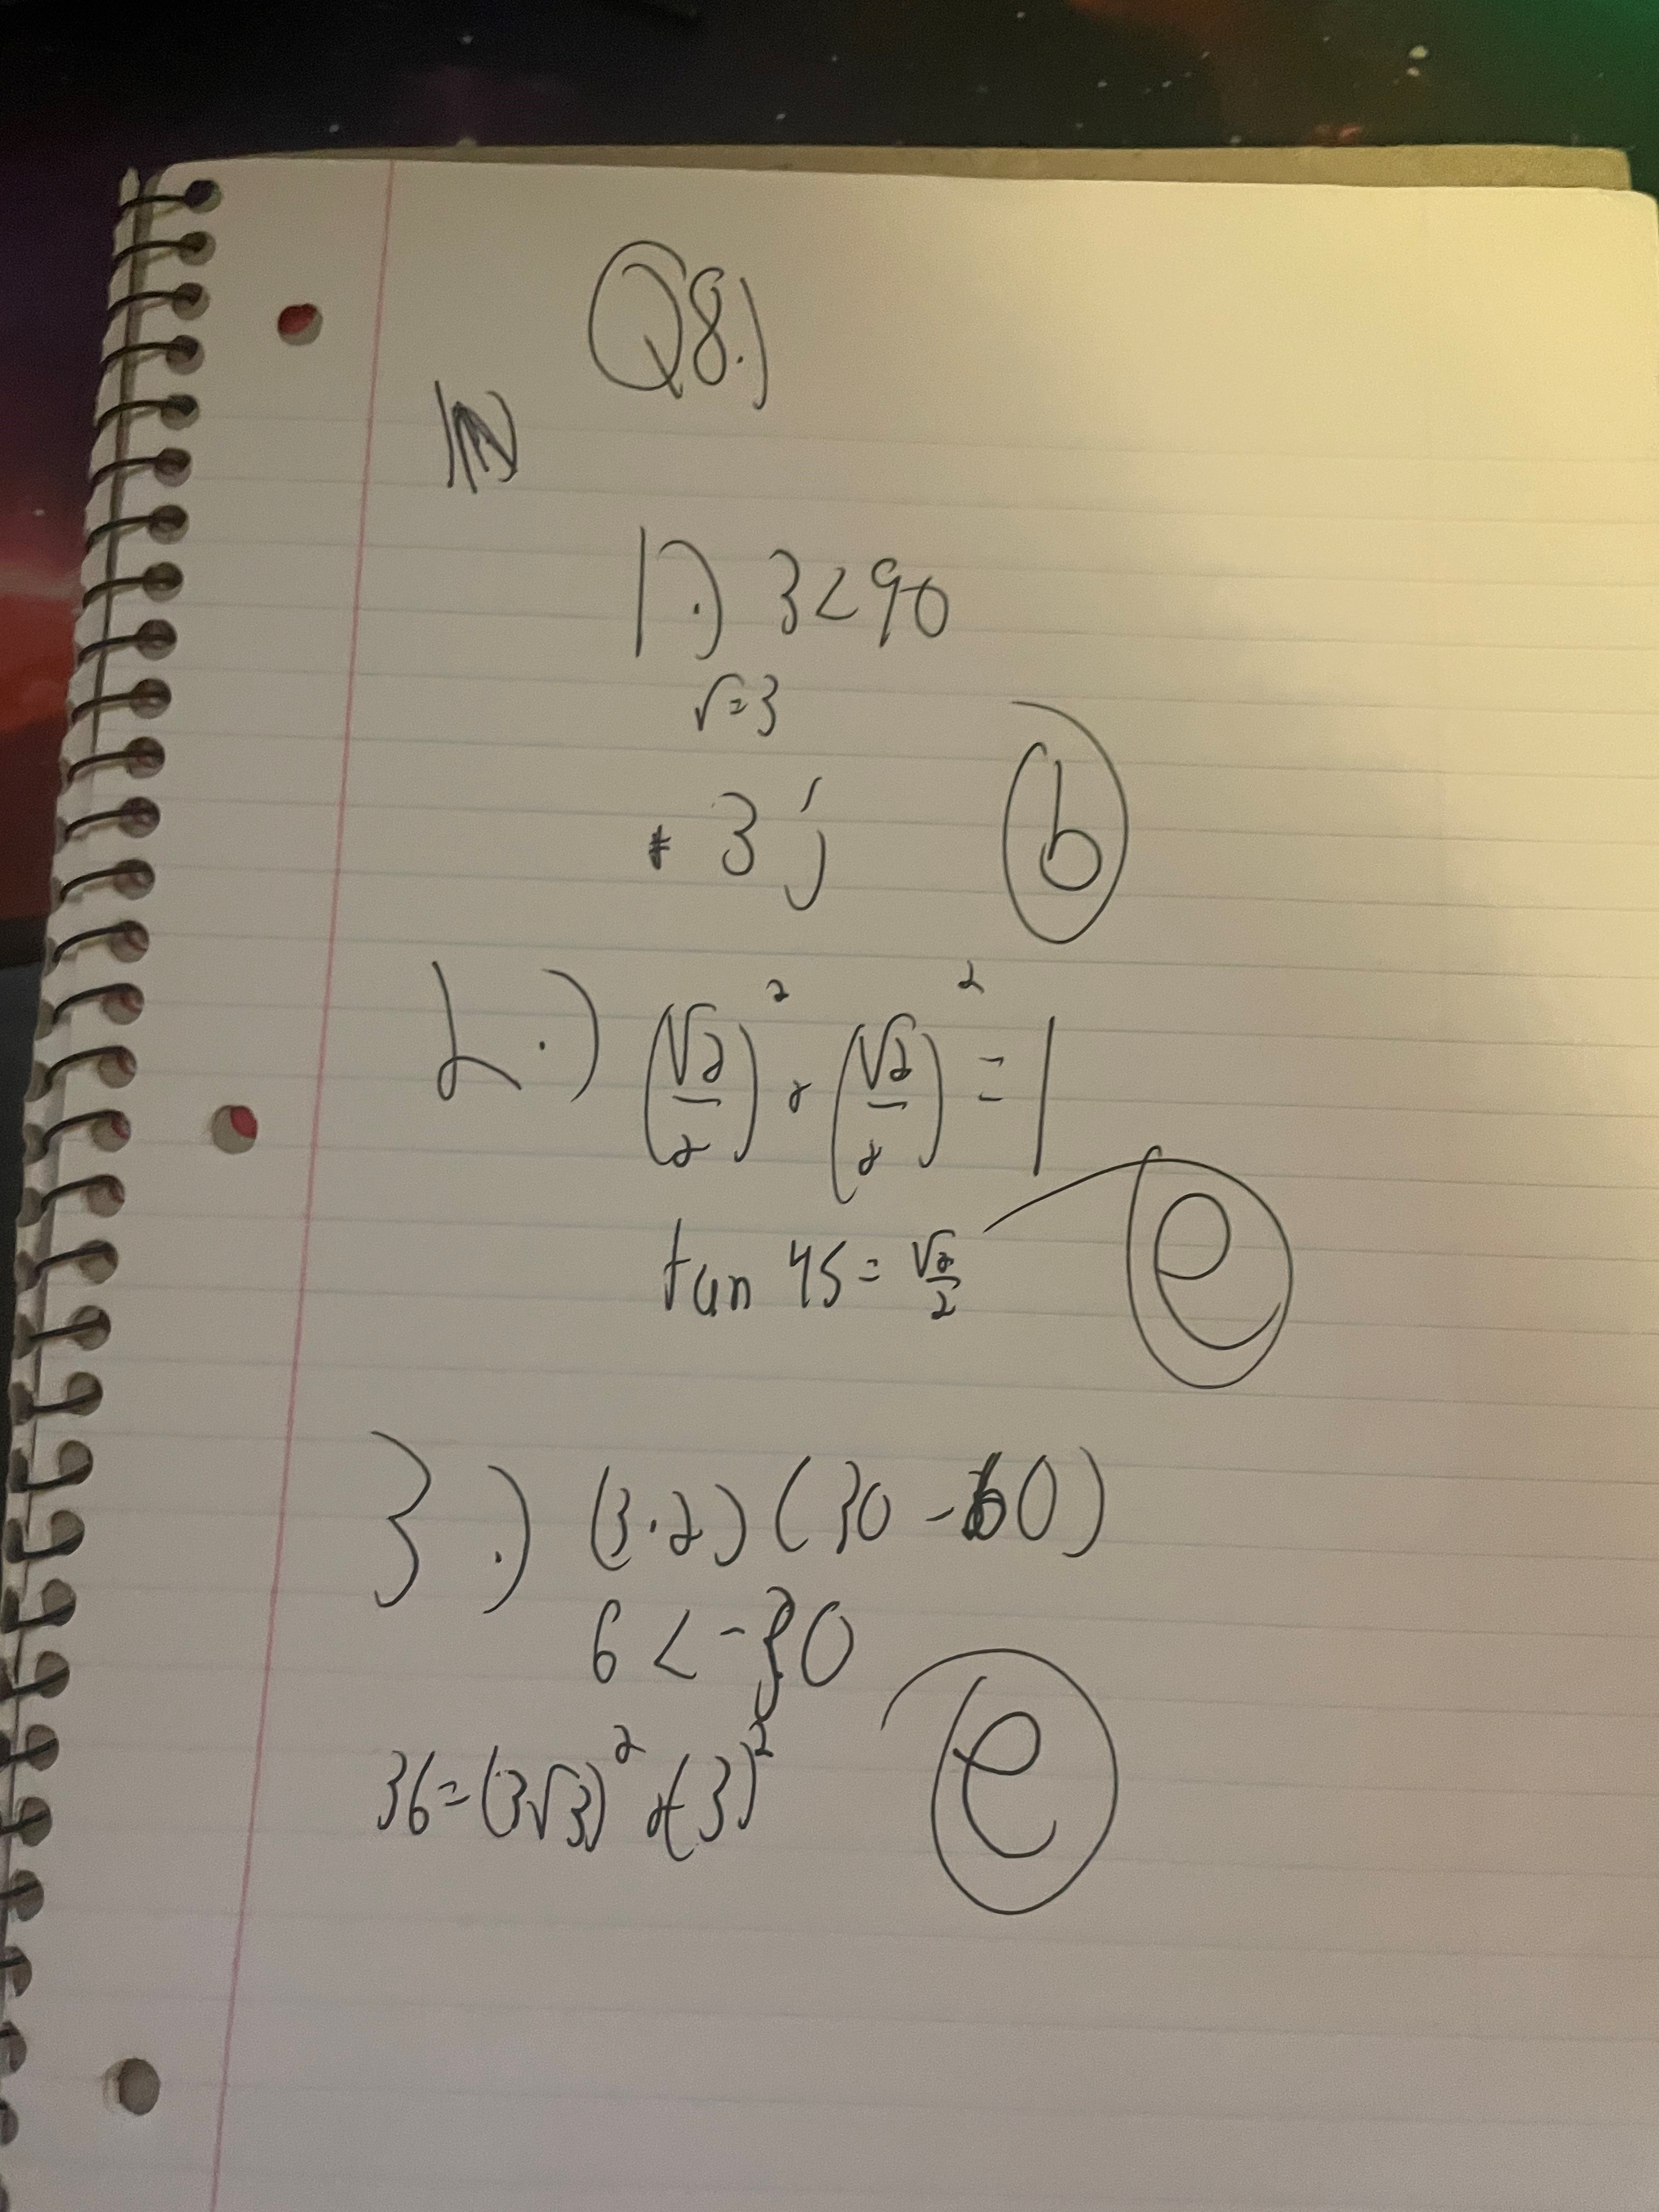 Q8.)
1.) 3<90
r=3
3j
b
2.) (√2/2)² + (√2/2)² = 1
tan 45 = √2/2
e
3.) (3·2)(30-60)
6<-30
36=(3√3)²+(3)²
e